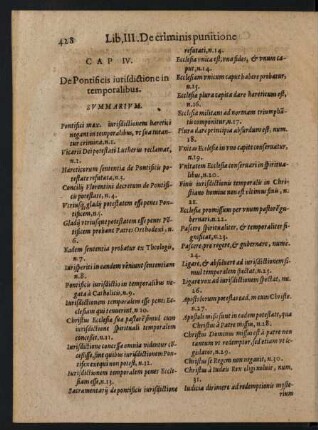 428 Lib. III. De criminis punitione
CAP IV.
De Pontificis iurisdictione in
temporalibus.
SVMMARIVM.
Pontifici max. iurisdictionem haretici
negant in temporalibus, ve sua tuean
tur crimina, n.1.
Vicariũ Dei potestatẽ Lutherus reclamat,
n.1.
Hareticorum sententia de Pontificis po-
testate refutata, n.3.
Concilij Florentini decretum de Pontifi-
cis potestate, n.4.
Vtriusq; gladij potestatem esse penes Pon-
tificem, n.5.
Gladij vtriusque potestatem esse penes Põ-
tificem probant Patres Orthodoxi,
n.6.
Eadem sententia probatur ex Theologis,
n.7.
Iurisperiti in eandem veniunt sententiam
n.8.
Pontificis iurisdictio in temporalibus ne-
gata à Catholicis, n.9.
Iurisdictionem temporalem esse penes Ec-
clesiam qui tenuerint, n.10.
Christus Ecclesia sua pastori summo cum
iurisdictione spirituali temporalem
concessit, n.11.
Iurisdictione concessa omnia videntur cõ-
cessa, sine quibus iurisdictionem Pon-
tifex exequi non potest, n.12.
Iurisdictionem temporalem penes Eccle-
siam esse, n.13.
Sacramentarij de pontificis iurisdictione
refutati, n.14.
Ecclesia vnica est, vna fides, & vnum ca-
put, n.14.
Ecclesiam vnicum caput habere probatur,
n.15.
Ecclesia plura capita dare hareticum est,
n.16.
Ecclesia militans ad normam triumphã-
tis componitur, n.17.
Plura dari principia absurdum est, num.
18.
Vnitas Ecclesia in vno capite conseruatur,
n.19.
Vnitatem Ecclesia conseruari in spiritua-
libus, n.20.
Finis iurisdictionis temporalis in Chri-
stianis homines non est vltimus finis, n.
22.
Ecclesia promissum per vnum pastorẽ gu-
bernari, n.22.
Pascere spiritualiter, & temporaliter si-
gnificat, n.23.
Pascere pro regere, & gubernare, num.
24.
Ligare, & absoluere ad iurisdictionem
simul temporalem spectat, n.25.
Ligare tenere ad iurisdictionem spectat, nu.
26.
Apostolorum potestas eadem cum Christo
n.27.
Apostoli missi sunt in eadem forma, qua
Christus à Patre missus, n.28.
Christus Dominus missus est à patre non
solum vt redimeret, sed etiam vt le-
gis daret, n.29.
Christus se Regem non negauit, n.30.
Christus à Iudais Rex eligi noluit, num.
31.
Iudicia dirimere ad redemptionis myste-
rium